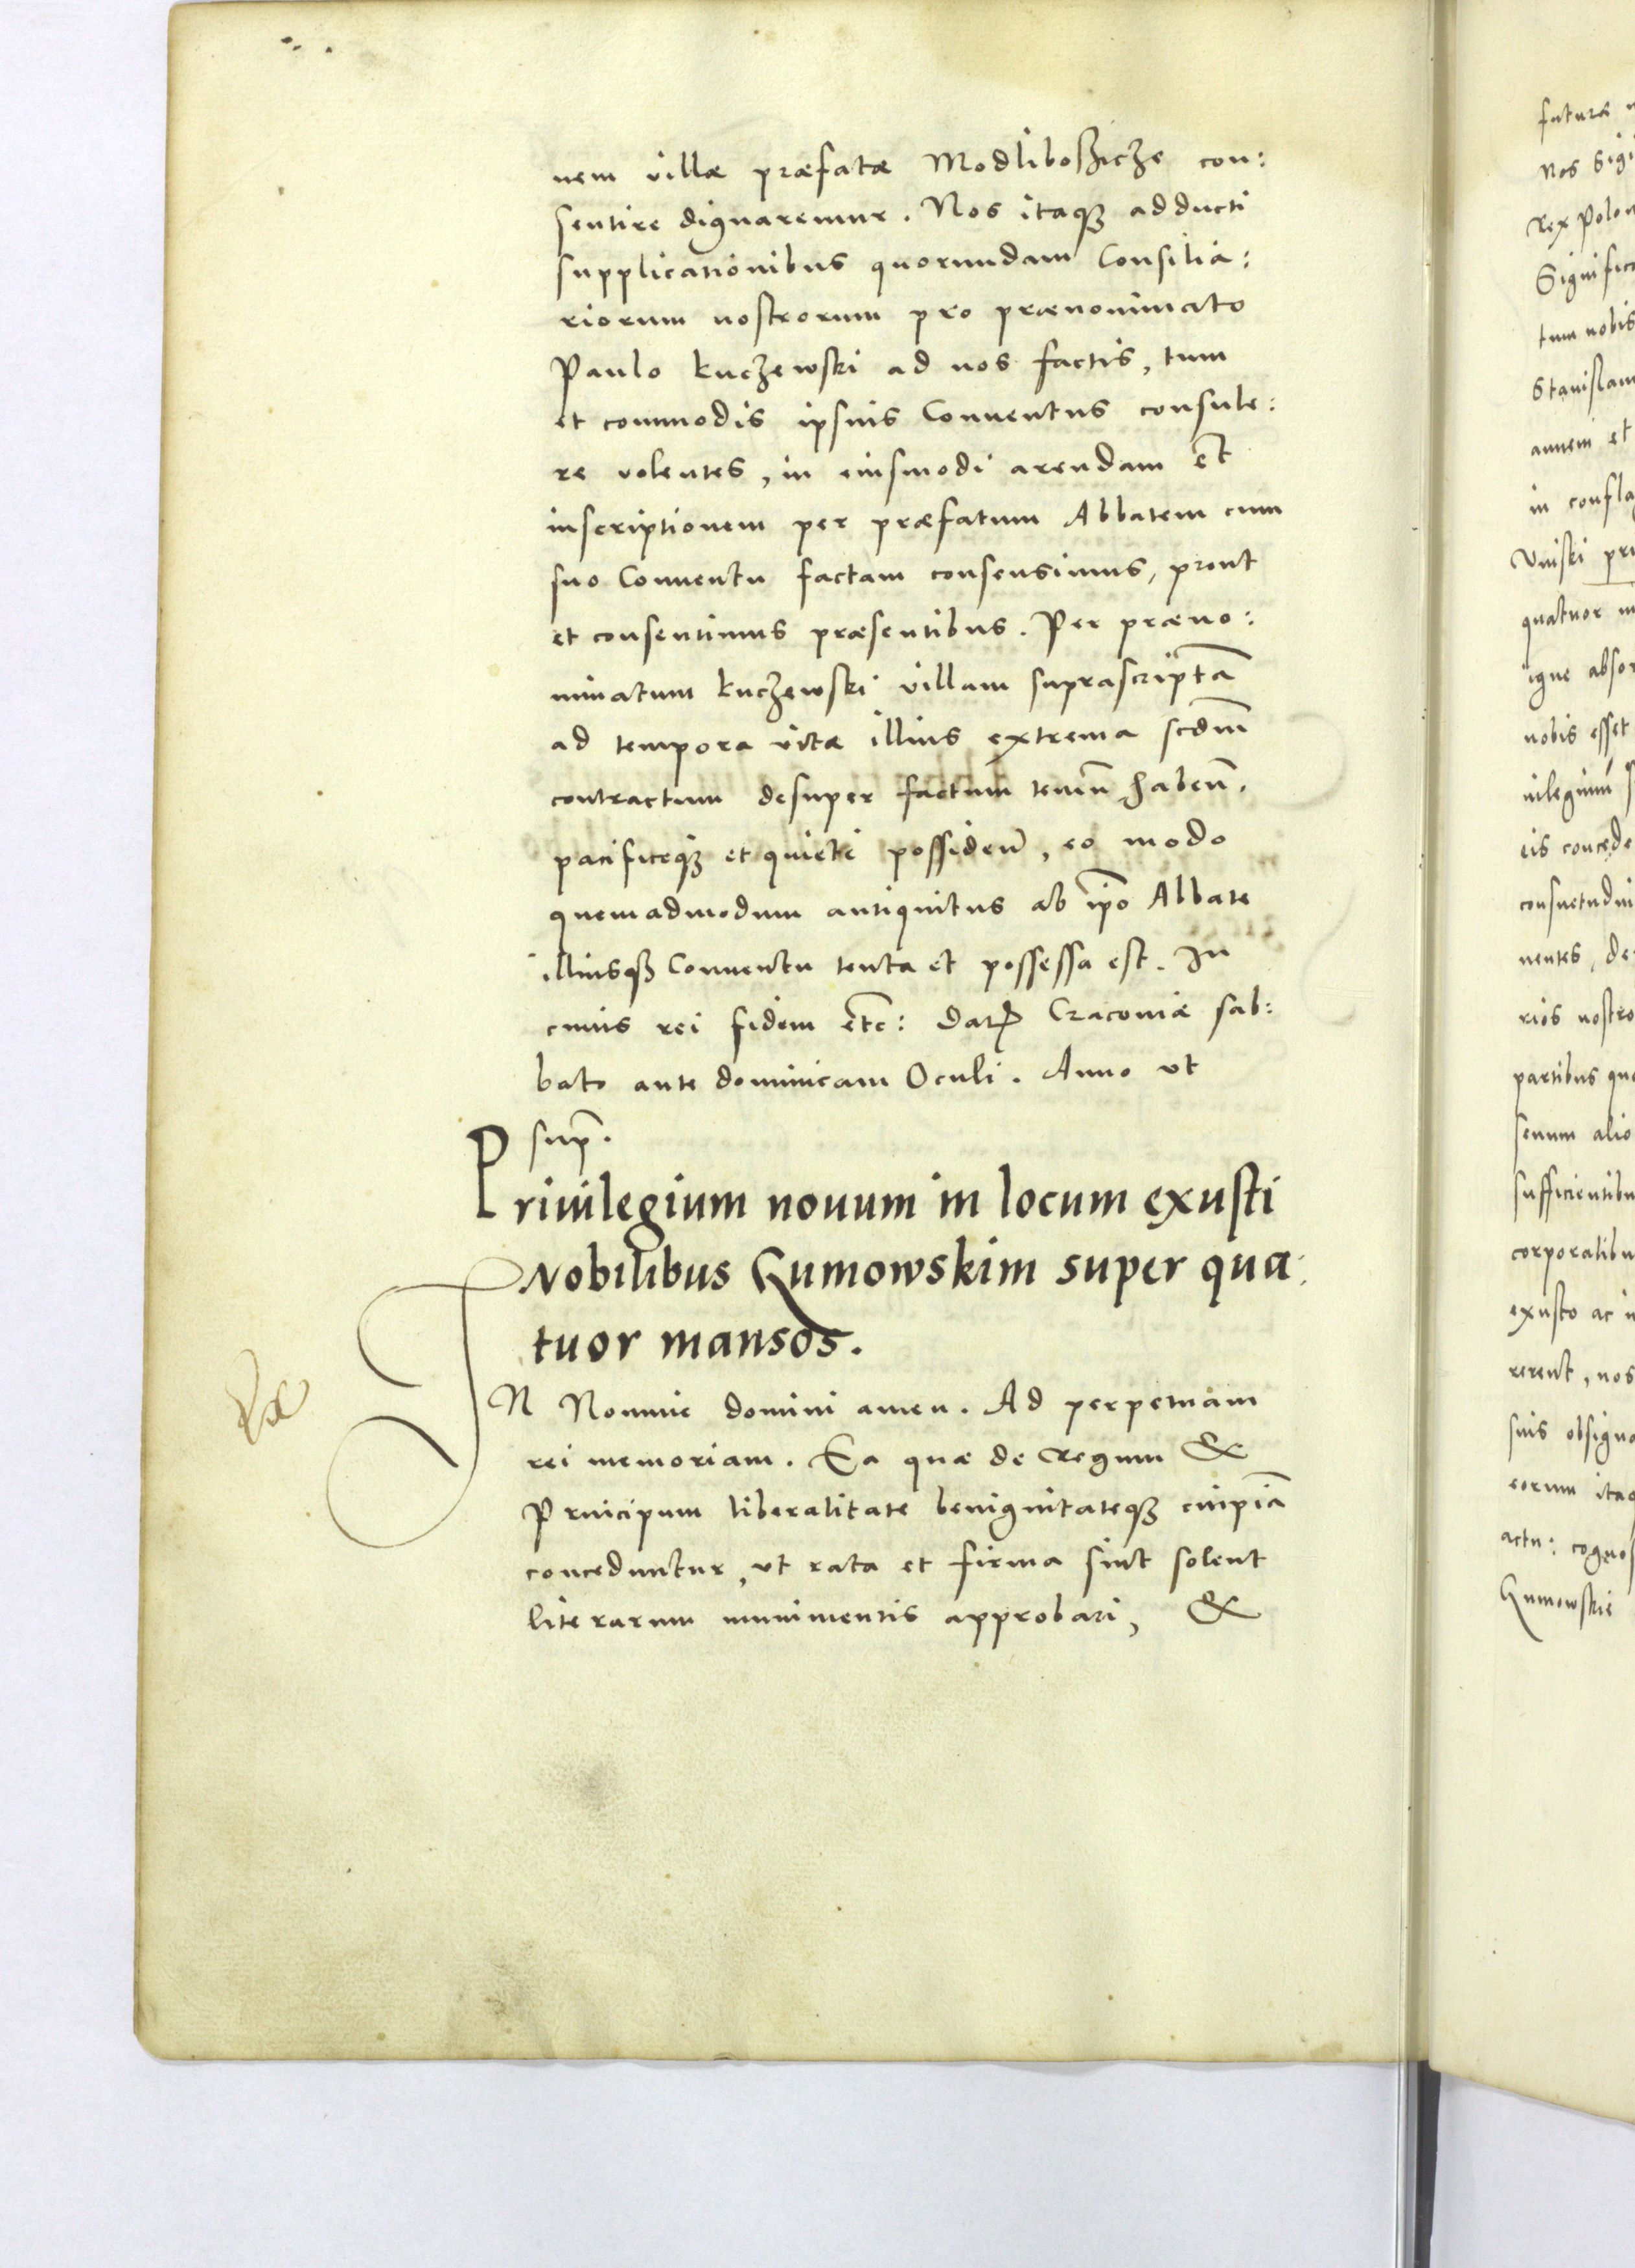 nem villæ præfatæ Modliboſzicze con:
sentire dignaremur. Nos itaqȝ adducti
supplicationibus quorundam Consilia:
riorum nostrorum pro prænominato
Paulo Kuczewski ad nos factis, tum
et commodis ipsius Conuentus consule:
re volentes, in eiusmodi arendam et
inscriptionem per præfatum Abbatem cum
suo Conuentu factam consensimus, prout
et consentimus præsentibus. Per præno:
minatum Kuczewski villam suprascriptā
ad tempora vitæ illius extrema scdm̄
contractum desuper factum teneñ habeñ.
pacificeqȝ et quiete possideñ, eo modo
quemadmodum antiquitus ab ip̄o Abbate
illiusqȝ Conuentu tenta et possessa est. In
cuius rei fidem etc̄: Datꝝ Cracouiæ sab:
bato ante dominicam Oculi. Anno vt
sup̄.
Priuilegium nouum in locum exusti
Nobilibus Humowskim super qua:
tuor mansos.
IN Nomine domini amen. Ad perpetuam
rei memoriam. Ea quæ de Regum &
Principum liberalitate benignitateqȝ cuipiā
conceduntur, vt rata et firma sint solent
literarum munimentis approbari, &
futuræ
Nos Sigi
Rex Polon
Signific
tum nobis
Stanislaum
annem et
in confla
Vniski
quatuor m
igne absor
nobis esset
uilegium
iis concede
consuetudin
nentes, de
rios nostro
partibus qu
senum alio
sufficientibu
corporalibu
exusto ac i
rerent, nos
suis obsigna
eorum itaq
actu: cognos
Humowskie